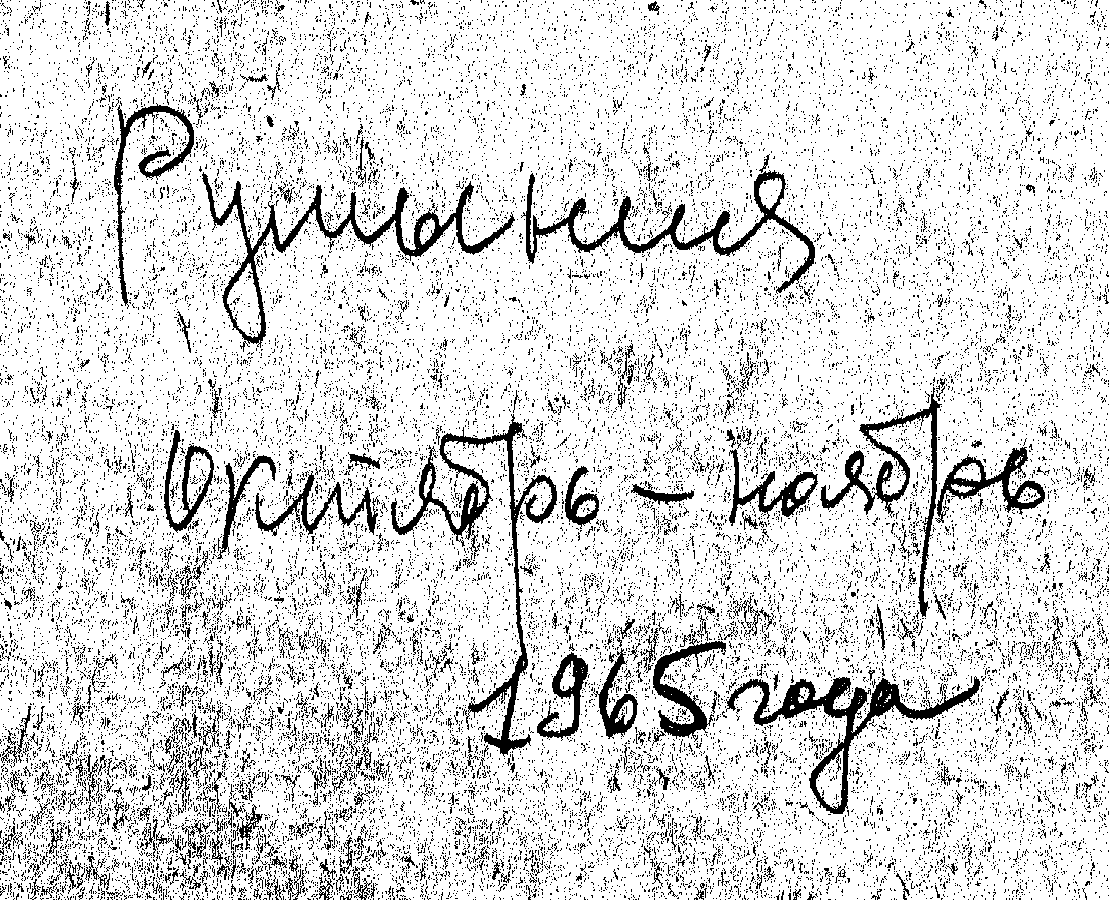 Румыния
октябрь - ноябрь
1965 года